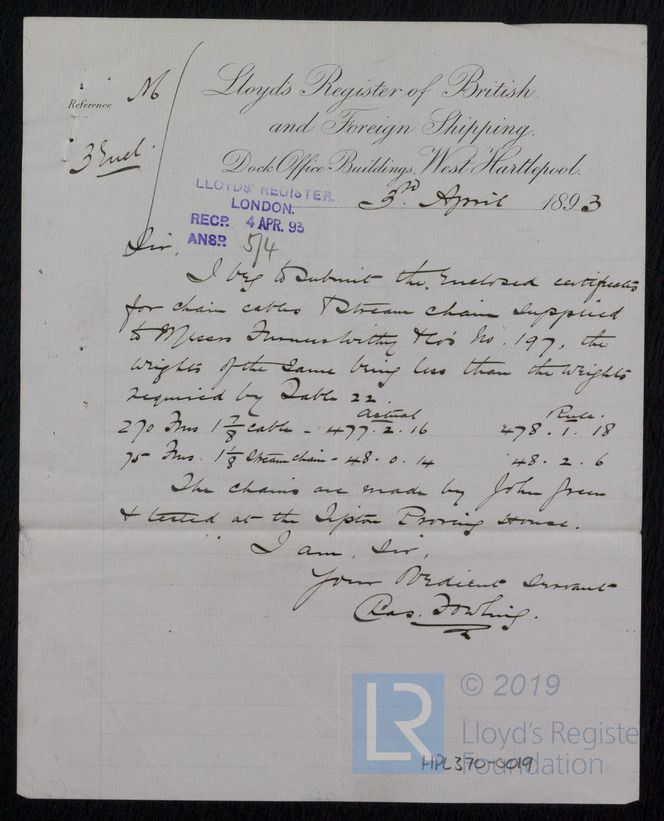 Lloyds Register of British
and Foreign Shipping.
Dock Office Buildings, West Hartlepool.
Reference M
3 Encl.
3rd April 1893
LLOYDS' REGISTER.
LONDON.
RECD. 4 APR. 93
ANSD. 5/4
Sir,
I beg to submit the Enclosed certificates
for chain cables & Stream chain supplied
to Messrs Furness Withy & Co's No. 197, the
weights of the same being less than the weights
required by Table 22.
Actual Rule.
270 Fms 1 7/8 cable - 477. 2. 16 478. 1. 18
75 Fms. 1 1/8 Stream chain - 48. 0. 14 48. 2. 6
The chains are made by John Green
& tested at the Tipton Proving House.
I am, Sir,
Your Obedient Servant
Chas. Fowling.
LR © 2019
Lloyd's Register
Foundation
HPL370-0019